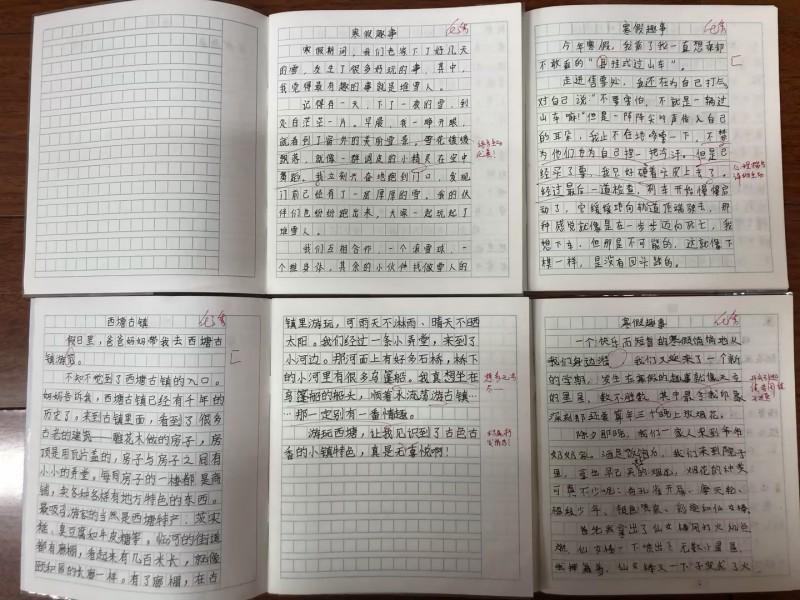 寒假趣事
寒假期间，我们也容下了好几天
的雪，发生了很多好玩的事，其中，
我觉得最有趣的事就是堆雪人。
记得有一天，下了一夜的雪，到
处白茫茫一片。早晨，我一睁开眼，
就看到了窗外的美丽雪景。雪花缓缓
飘落，就像一群调皮的小精灵在空中
舞蹈。我立刻兴奋地跑到门口，发现
门前已经有了一层厚厚的雪，我的伙
伴们也纷纷跑出来，大家一起玩起了
堆雪人。
我们互相合作，一个滚雪球，一
个堆身体，其余的小伙伴找做雪人的
寒假趣事
今年寒假，我乘了我一直想乘却
不敢乘的“悬挂式过山车”。
走进售票处，我还在为自己打气，
对自己说：“不要害怕，不就是一辆过
山车嘛！”但是一阵阵尖叫声传入自己
的耳朵，我止不住地哆嗦一下，不禁
为他们也为自己捏一把冷汗。但是已
经买了票，我只好硬着头皮上去了。
经过最后一道检查，列车开始慢慢启
动了，它缓缓地向轨道顶端驶去，那
种感觉就像是在一步步迈向死亡，我
想下车，但那是不可能的，这就像下
棋一样，是没有回头路的。
西塘古镇
假日里，爸爸妈妈带我去西塘古
镇游览。
不知不觉到了西塘古镇的入口。
妈妈告诉我，西塘古镇已经有千年的
历史了，来到古镇里面，看到了很多
古老的建筑——雕花木做的房子，房
顶是用瓦片盖的，房子与房子之间有
小小的弄堂。每间房子的一楼都是商
铺，卖各种各样有地方特色的东西。
最吸引游客的当然是西塘特产：芡实
糕、臭豆腐和牛皮糖等。临河的街道
都有廊棚，看起来有几百米长，就像
颐和园的长廊一样。有了廊棚，在古
镇里游玩，可雨天不淋雨、晴天不晒
太阳。我们经过一条小弄堂，来到了
小河边。那河面上有好多石桥，桥下
的小河里有很多乌篷船。我真想坐在
乌篷船的船头，顺着水流荡游古镇…
…那一定别有一番情趣。
游玩西塘，让我见识到了古色古
香的小镇特色，真是无喜悦啊！
寒假趣事
一个快乐而短暂的寒假悄悄地从
我们身边溜，我们又迎来了一个新
的学期，发生在寒假的趣事就像天上
的星星，数不胜数，其中最令我印象
深刻那还要算年三十晚上放烟花。
除夕那晚，我们一家人来到爷爷
奶奶家。酒足饭饱后，我们来到院子
里，拿出早已买的烟花，烟花的种类
可真不少呢：有孔雀开屏、摩天轮、
和仙女棒
首先我拿出了仙女棒用打火机点
燃，仙女棒一下喷出了无数小星星，
仙女棒又一下子变成了火